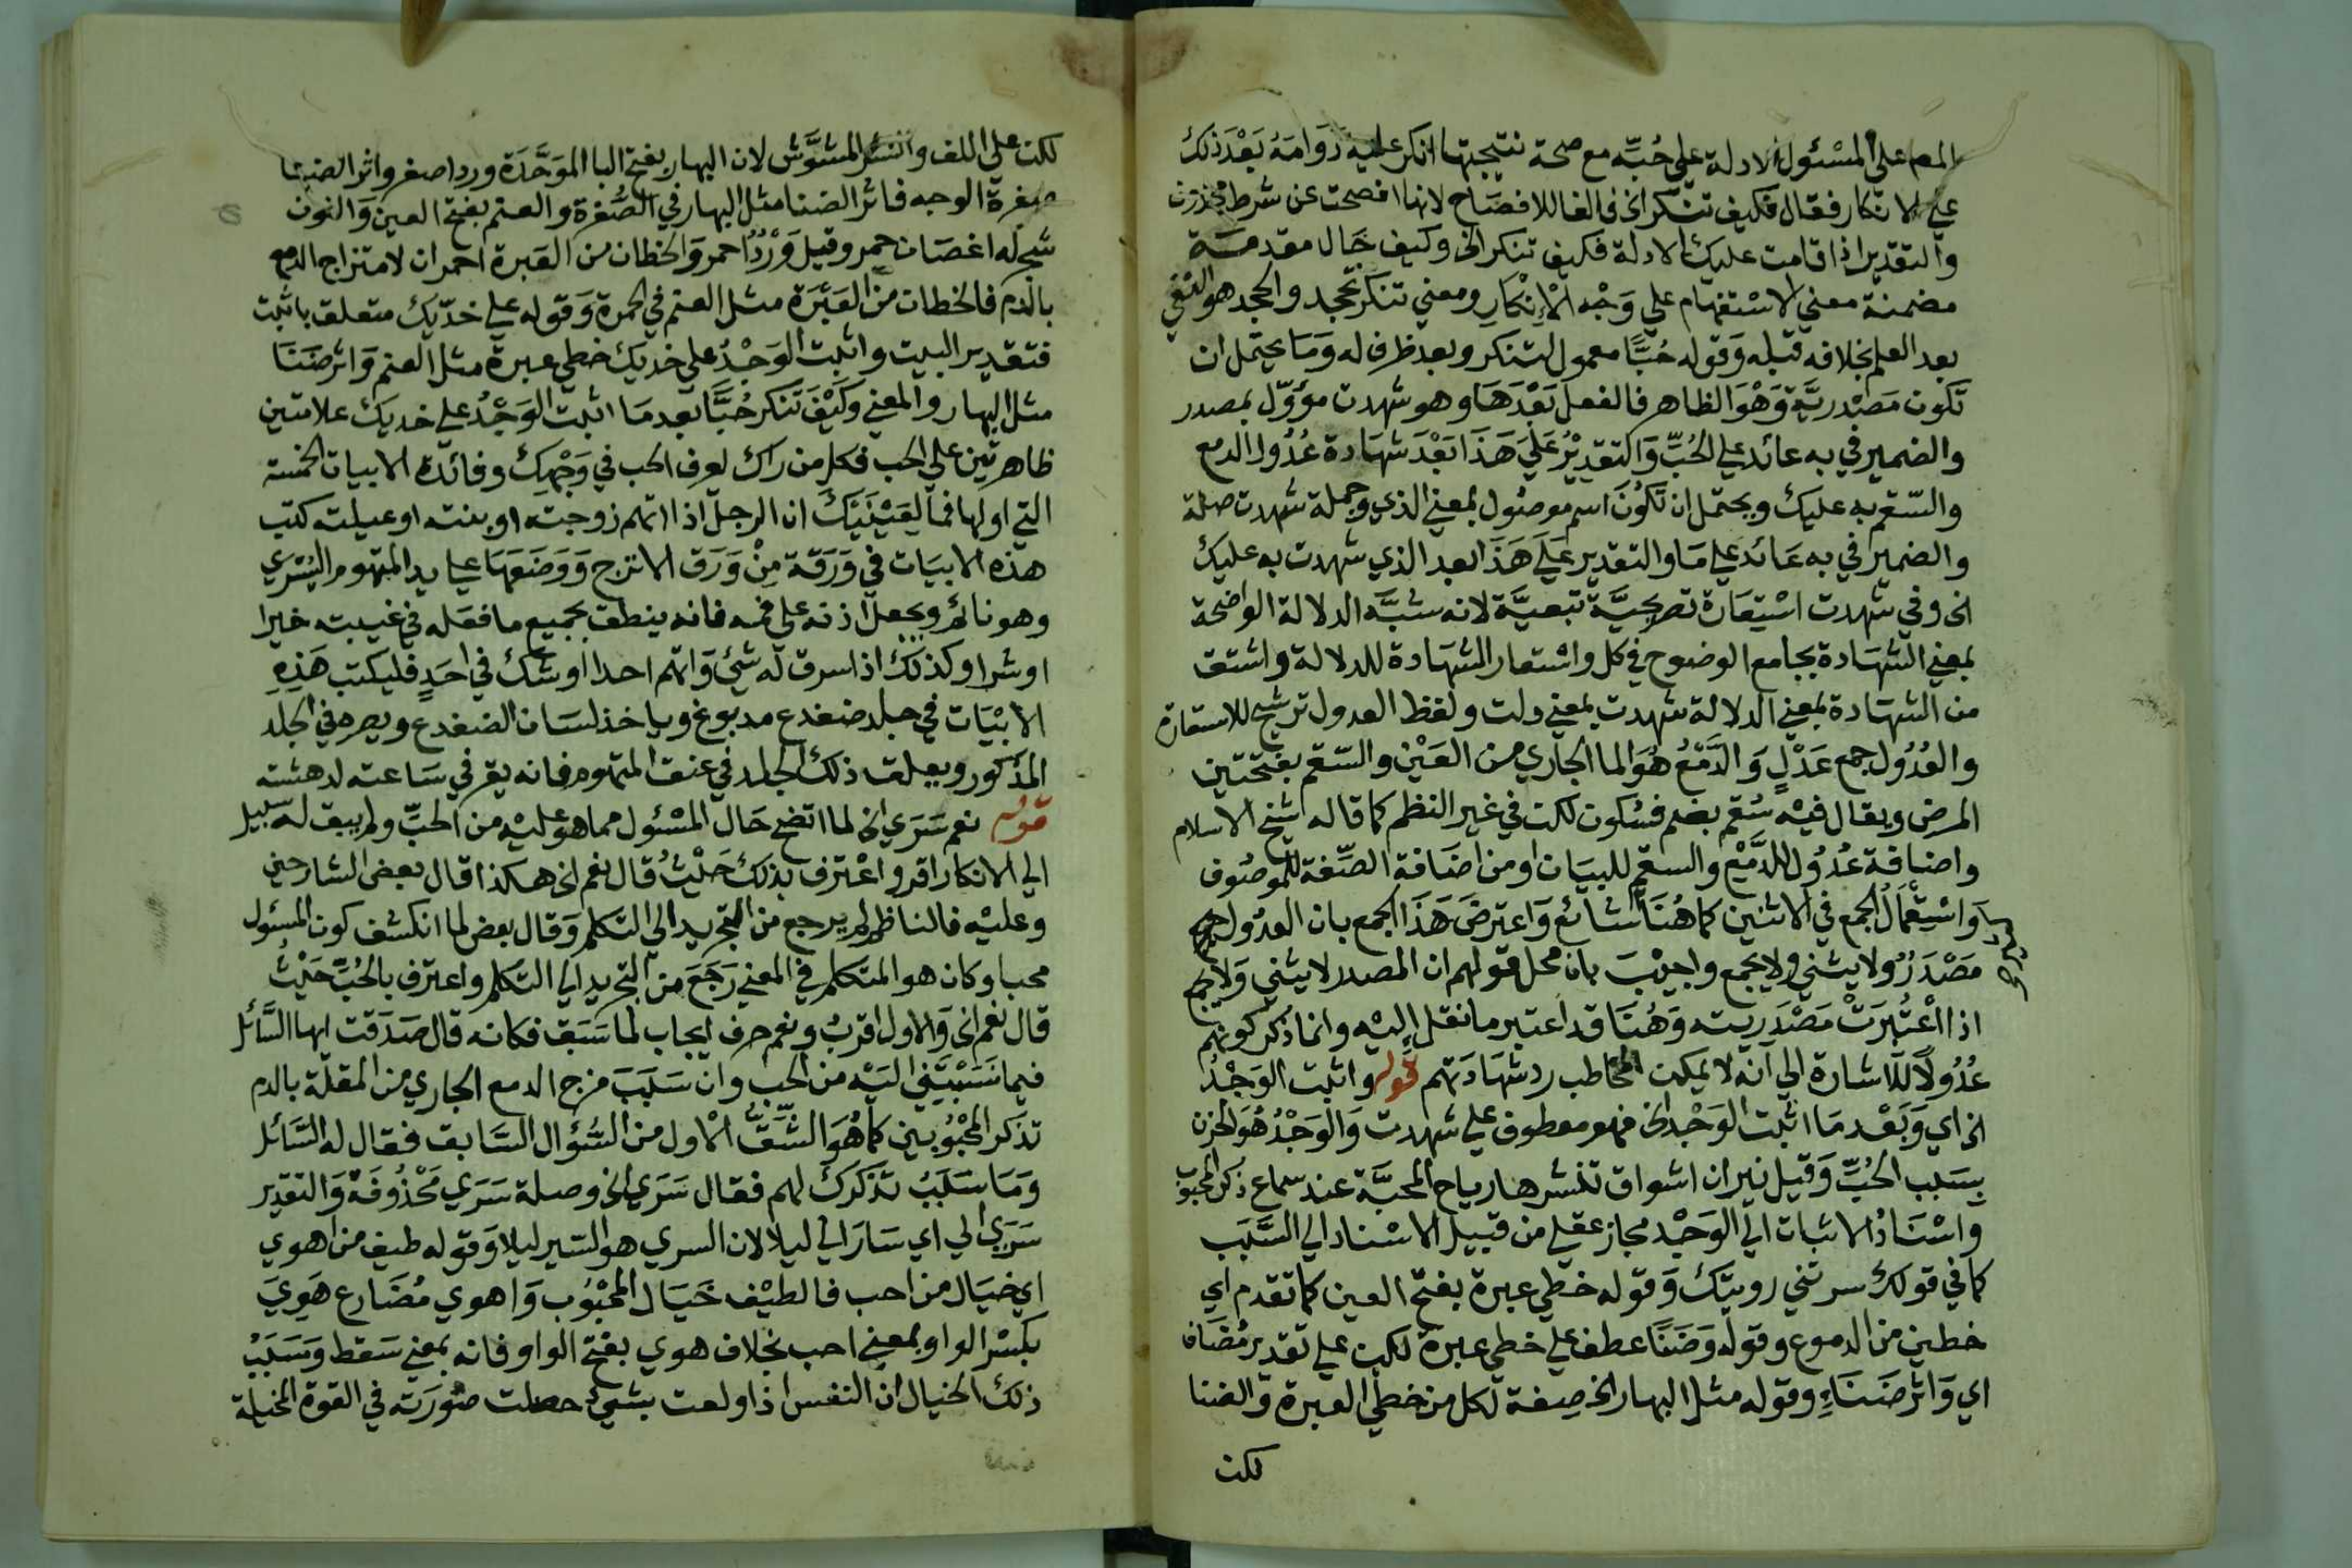 المص على المسئول الادلة على حُبِّه مع صحة نتيجتها انكر عليه دَوَامَهُ بَعْدَ ذلك
على الانكار فقال فكيف تنكر الخ فالفا للافصَاح لانها افصحت عن شرط محذوف
والتقدير اذا قامت عليك الادلة فكيف تنكر الخ وكيف حَال مقدمَة
مضمنة معني الاسْتفهام علي وَجْه الْإِنْكَارِ ومعني تنكر تجحد والجحد هو النفي
بعد العلم بخلافه قبله وَقوله حُبًّا معمول لتنكر وبعد ظرف له وَمَا يحتمل ان
تكون مَصْدريَّة وَهْوَ الظاهر فالفعل بَعْدَهَا وهو شهدت مؤوّل بمصدر
والضمير في به عائد علي الحُبِّ وَالتقدِيْرُ عَلَي هَذَا بَعْدَ شهَادة عُدُول الدمع
والسّقم به عليك ويحتمل ان تكُونَ اسم موصُول بمعني الذي وجملة شهدت صلة
والضمير في به عَائد علي مَا والتقدير عَلَي هَذَا بعد الذي شهدت به عليك
الخ وفي شهدت اسْتِعَارة تصريحيَّة تبعيَّة لانه شبَّه الدلالة الواضحة
بمعني الشهَادة بجامع الوضوح في كل واسْتعار الشهَادة للدلالة واشتق
من الشهَادة بمعني الدلالة شهدت بمعني دلت ولفظ العدول ترشيح للاستعارة
والعُدُول جمع عَدْلٍ وَالدَّمْعُ هُوَ الما الجاري من العَيْن والسّقم بفتحتين
المرض ويقال فيْه سُقم بضم فسُكون لكن في غير النظم كما قاله شيخ الاسلام
واضافة عُدُول للدَّمْع والسقم للبيَان او من اضَافة الصِّفة للموصُوف
وَاسْتِعْمَالُ الجمع في الاثنين كما هُنَا شائع وَاعترضَ هَذَا الجمع بان العدُول جمع
مَصْدَرٌ ولا يثني ولا يجمع واجِيْبَ بان محل قولهم ان المصدر لا يثني وَلا يجمع
اذا اعْتُبِرَتْ مَصْدَريته وَهُنَا قد اعتبر ما نقل إليْه وانما ذكر كونهم
عُدُولًا للاشارة الي انه لا يمكن المخاطب رد شهَادَتهم قوله واثبت الوَجْدُ
الخ اي وَبَعْد مَا اثبت الوَجْد الخ فهو معطوف علي شهدت وَالوَجْدُ هُوَ الحزن
بسَبب الحُبِّ وَقيل نيران اشواق تنشرها رياح المحبَّة عند سماع ذكر المحبوب
وَاسْنَادُ الاثبات الي الوَجْد مجاز عقلي من قبيل الاسْناد الي السَّبَب
كما في قولك سرتني رويتك وَقوله خطي عبرة بفتح العين كما تقدم اي
خطين من الدموع وقوله وَضَنًا عطف علي خطي عبرة لكن علي تقدير مُضَاف
اي وَاثر ضَنَاءٍ وقوله مثل البهار الخ صِفة لكل من خطي العبرة وَالضنا
لكن
لكن علي اللف والنشر المشوَّش لان البهار بفتح البا الموَحَّدَة ورد اصفر واثر الضنا
صفرة الوجه فاثر الضنا مثل البهار في الصُّفرة والعنم بفتح العين وَالنون
شجر له اغصَان حمر وقيل وَرْدٌ احمر وَالخطان من العَبرة احمران لامتزاج الدمع
بالدم فالخطان من العَبْرَة مثل العنم في الحمرة وَقوله علي خدّيك متعلق باثبت
فتقدير البيت واثبت الوَجْدُ علي خديك خطي عبرة مثل العنم وَاثر ضَنَا
مثل البهار والمعني وَكيْفَ تنكر حُبًّا بعد مَا اثبت الوَجْدُ علي خديك علامتين
ظاهرتين علي الحب فكل من رَاك يعرف الحب في وَجْهِكَ وفائدة الابيات الخمسة
التي اولها فما لعَيْنَيْكَ ان الرجل اذا اتهم زوجته او بنته او عيلته كتب
هذه الابيَات في وَرَقَة مِنْ وَرَق الاترج وَوَضَعَهَا علي يد المتهوم اليُسْري
وهو نائم ويجعل اذنه علي فمه فانه ينطق بجميع ما فعَله في غيبته خيرا
او شرا وكذلك اذا سرق له شئ وَاتهم احدا او شك في احَدٍ فليكتب هَذِهِ
الابْيَات في جلد ضفدع مدبوغ ويأخذ لسَان الضفدع ويصره في الجلد
المذكور ويعلق ذلك الجلد في عنق المتهوم فانه يقر في سَاعته لدهشته
قوله نعم سَرَي الخ لما اتضح حَال المسْئول مما هو عليْه من الحبّ ولم يبق له سَبيل
الي الانكار اقر واعْترف بذلك حَيْثُ قال نعم الخ هكذا قال بعض الشارحين
وعليْه فالناظم لم يرجع من التجريد الي التكلم وَقال بعض لما انكشف كون المسئول
محبا وكان هو المتكلم في المعني رَجَعَ من التجريد الي التكلم واعترف بالحُبّ حَيْثُ
قال نعم الخ وَالاول اقربُ ونعم حرف ايجاب لما سَبَق فكانه قال صَدَقت ايها السَّائل
فيما نسَبْتِني اليْه من الحب وان سَبَبَ مزج الدمع الجاري من المقلة بالدم
تذكر المحْبُوبين كما هُوَ الشِّقُّ الاول من السُّؤال السَّابق فقال له السَّائل
وَمَا سَبَبُ تذكرك لهم فقال سَرَي الخ وصلة سَرَي مَحْذُوفَة وَالتقدير
سَرَي الي اي سَارَ الي ليلا لان السري هو السّير ليلا وَقوله طيف من اهوي
اي خيَال من احب فالطيْف خيَال المحْبُوب وَاهوي مُضَارع هَوِيَ
بكسْر الواو بمعني احب بخلاف هوي بفتح الواو فانه بمعني سَقط وَسَبَبُ
ذلك الخيال ان النفس اذا ولعت بشئ حصلت صُورَته في القوة المخيلة